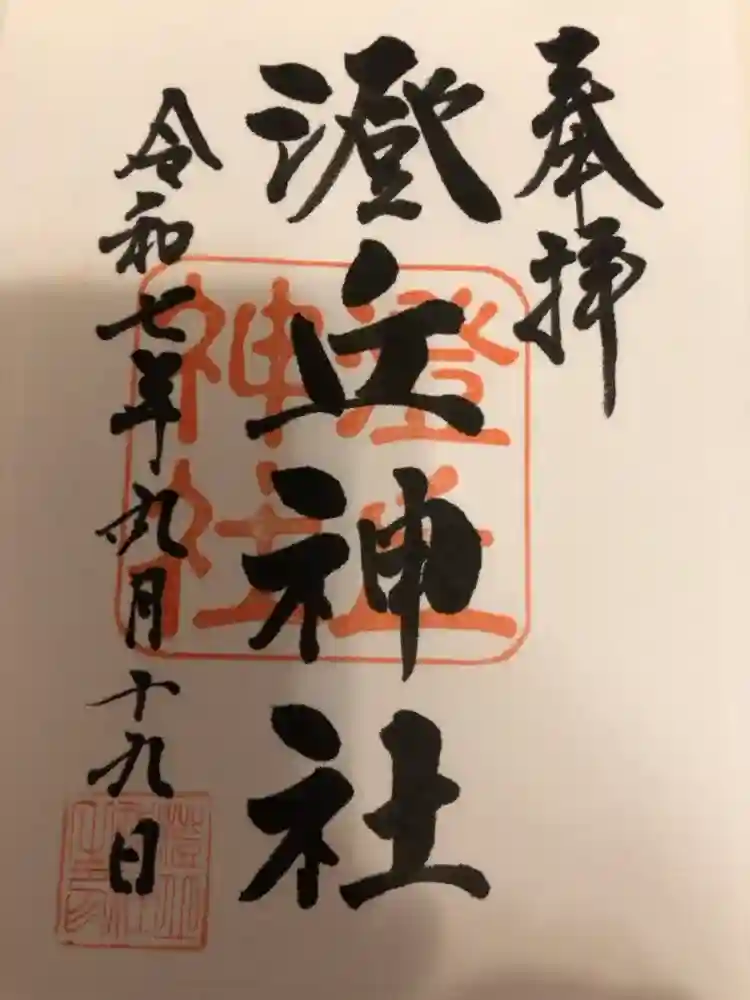 奉拝
澄丘神社
令和七年九月十九日
澄丘
神社